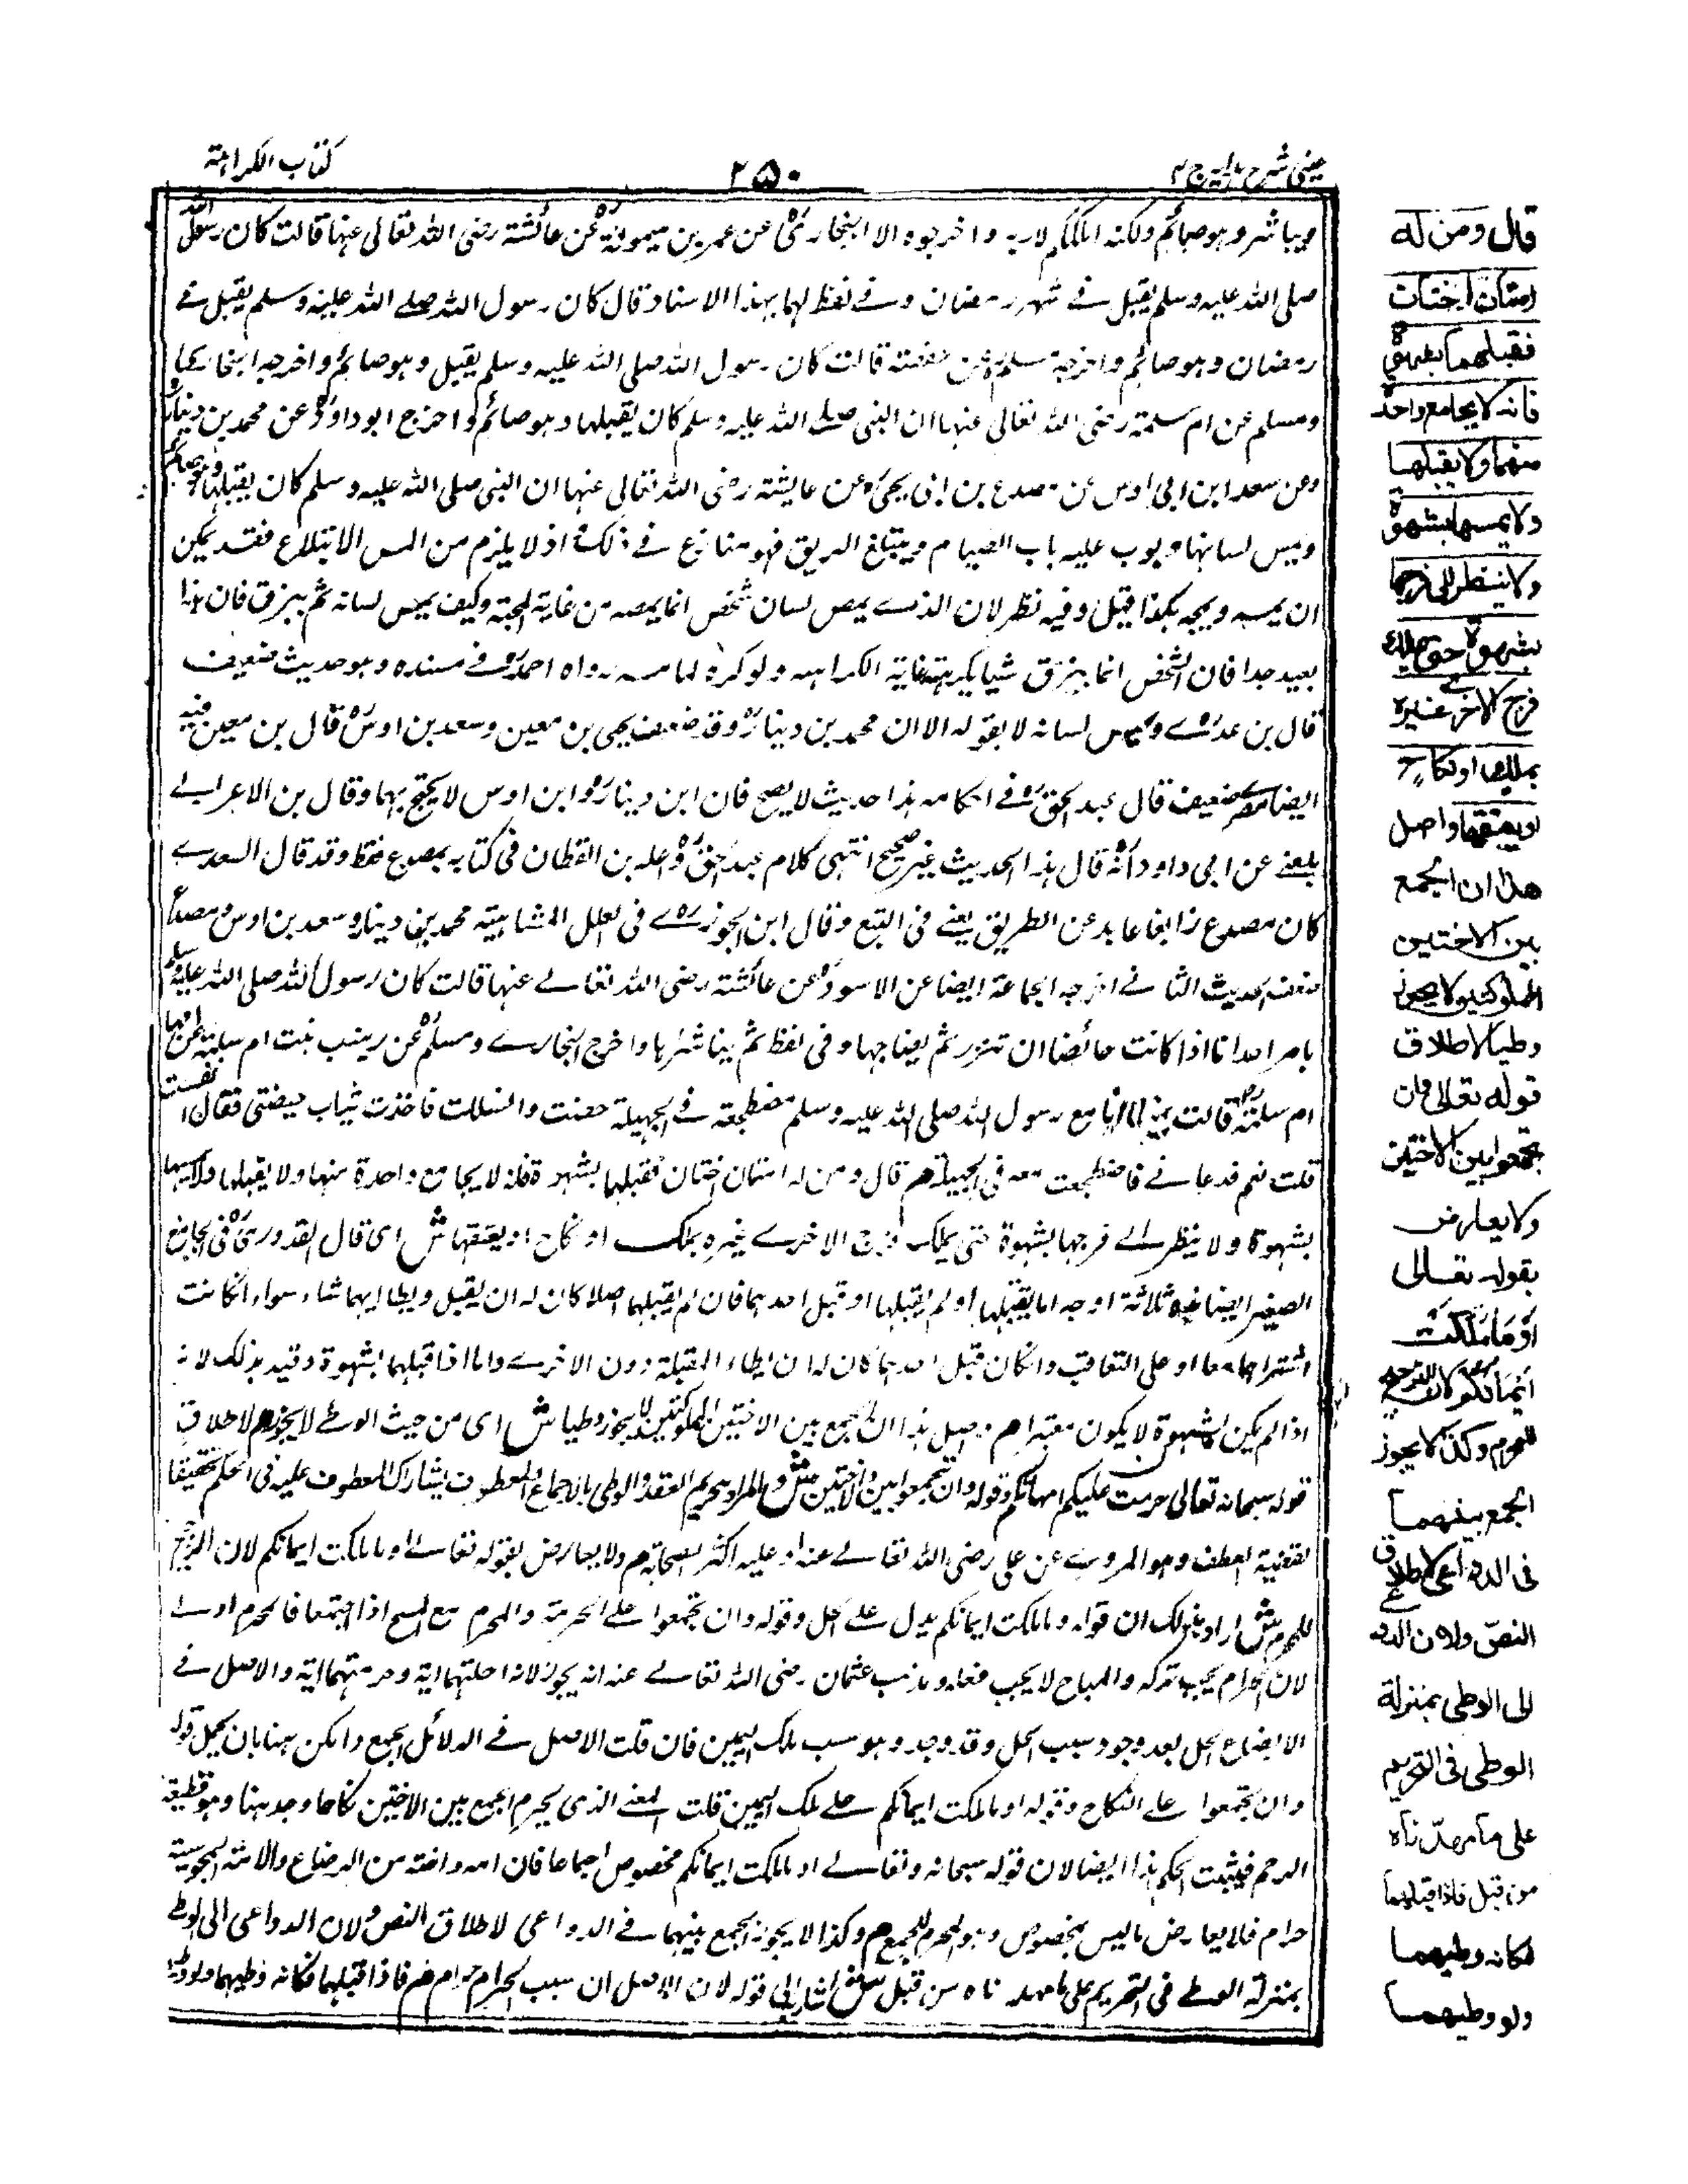 عینی شرح ہدایہ ج ۴
۲۵۰
کتاب الکراہتہ
ویباشر وہو صائم ولکنہ املککم لاربہ واخرجوہ الا البخاری عن عمر بن میمونۃ عن عائشتہ رضی اللہ تعالی عنہا قالت کان رسول اللہ
صلی اللہ علیہ وسلم یقبل فے شہر رمضان وفے لفظ لہما بہذا الاسناد قال کان رسول اللہ صلے اللہ علیہ وسلم یقبل فے
رمضان وہو صائم واخرجہ مسلم عن حفصتہ قالت کان رسول اللہ صلی اللہ علیہ وسلم یقبل وہو صائم واخرجہ البخاری
ومسلم عن ام سلمتہ رضی اللہ تعالی عنہا ان النبی صلے اللہ علیہ وسلم کان یقبلہا وہو صائم واخرج ابو داود عن محمد بن دینار
وعن سعد ابن ابی اوس عن مصدع بن ابی یحیی عن عایشتہ رضی اللہ تعالی عنہا ان النبی صلی اللہ علیہ وسلم کان یقبلہا وہو صائم
ویمص لسانہا وبوب علیہ باب الصیام ویبتلع الریق فہو منازع فے ذلک اذ لا یلزم من المص الابتلاع فقد یمکن
ان یمصہ ویمجہ ہکذا قیل وفیہ نظر لان الذے یمص لسان شخص انما یمصہ من غایۃ المحبۃ وکیف یمص لسانہ ثم یبزق فان ہذا
بعید جدا فان الشخص انما یبزق شیا یکرہتہ غایۃ الکراہہ ولو کرہ لما مصہ رواہ احمد فے مسندہ وہو حدیث ضعیف
قال بن عدے ویمص لسانہ لا یقولہ الا ان محمد بن دینار وقد ضعفہ یحیی بن معین وسعد بن اوس قال بن معین فیہ
ایضا بصرے ضعیف قال عبد الحق فے احکامہ ہذا حدیث لا یصح فان ابن دینار وابن اوس لا یحتج بہما وقال بن الاعرابے
بلغنے عن ابی داود انہ قال ہذا الحدیث غیر صحیح انتہی کلام عبد الحق واعلہ بن القطان فی کتابہ بمصدع فقط وقد قال السعدے
کان مصدع زایغا عابد عن الطریق یعنے فی التبع وقال ابن الجوزے فی العلل المشابیتہ محمد بن دینار وسعد بن اوس ومصدع
ضعفہ الحدیث الثانے اخرجہ الجماعۃ ایضا عن الاسود عن عائشتہ رضی اللہ تعالے عنہا قالت کان رسول اللہ صلی اللہ علیہ وسلم
یامر احدانا اذا کانت حائضا ان تتزر ثم یضاجہا وفی لفظ ثم یباشرہا واخرج البخارے ومسلم عن زینب بنت ام سلمۃ عن امہا
ام سلمۃ قالت بینما انا مع رسول اللہ صلی اللہ علیہ وسلم مضطجعۃ فے الجہیلۃ حضنت وانسللت فاخذت ثیاب حیضتی فقال انفست
قلت نعم فدعانے فاضطجعت معہ فی الجمیلۃ م قال ومن لہ امتان اختان فقبلہما بشہوۃ فانہ لا یجامع واحدۃ منہما ولا یقبلہا ولا یمسہا
بشہوۃ ولا ینظر الے فرجہا بشہوۃ حتی یملک فرج الاخرے غیرہ بملک او نکاح او یعتقہا ش ای قال القدوری فی الجامع
الصغیر ایضا فیہ ثلاثۃ اوجہ اما یقبلہا او لم یقبلہا او قبل احدہما فان لم یقبلہما اصلا کان لہ ان یقبل ویطا ایہما شاء سواء کانت
اشتراہما معا او علی التعاقب وان کان قبل احدہما کان لہ ان یطاء المقبلۃ دون الاخرے واما اذا قبلہما بشہوۃ وقید بذلک لانہ
اذا لم یکن الشہوۃ لا یکون معتبرا م واصل ہذا ان الجمع بین الاختین المملوکتین لا یجوز وطیا ش ای من حیث الوطے لا یجوز م لاطلاق
قولہ سبحانہ تعالی حرمت علیکم امہاتکم وقولہ وان تجمعوا بین الاختین ش والمراد تحریم العقد والوطی بالاجماع والمعطوف یشارک المعطوف علیہ فی الحکم تحقیقا
لقضیۃ العطف وہو المروے عن علی رضی اللہ تعالے عنہ او علیہ اکثر الصحابۃ م ولا یعارض بقولہ تعالے او ما ملکت ایمانکم لان الترجیح
للمحرم ش اراد بذلک ان قولہ وما ملکت ایمانکم یدل علے الحل وقولہ وان تجمعوا علے الحرمۃ والمحرم مع المبیح اذا اجتمعا فالمحرم اولے
لان الحرام یجب ترکہ والمباح لا یجب فعلہ ومذہب عثمان رضی اللہ تعالے عنہ انہ یجوز لانہ احلتہما ایۃ وحرمتہما ایۃ والاصل فے
الابضاع الحل بعد وجود سبب الحل وقد وجد وہو سبب ملک الیمین فان قلت الاصل فے الدلائل الجمع وامکن ہہنا بان یحمل قولہ
وان تجمعوا علے النکاح وقولہ او ما ملکت ایمانکم علے ملک الیمین قلت المعنے الذی یحرم الجمع بین الاختین نکاحا وجد ہہنا وہو قطیعۃ
الرحم فیثبت الحکم ہذا ایضا لان قولہ سبحانہ وتعالے او ما ملکت ایمانکم مخصوص اجماعا فان امہ واختہ من الرضاع والامتہ المجوسیۃ
حرام فلا یعارض ما لیس بمخصوص وہو المحرم للجمع م وکذا لا یجوز الجمع بینہما فے الدواعی لاطلاق النص ولان الدواعی الی الوطے
بمنزلۃ الوطے فی التحریم علی ما مہدناہ من قبل ش اشار الی قولہ لان الاصل ان سبب الحرام حرام م فاذا قبلہما فکانہ وطیہما ولو وطیہما
قال ومن له
امتان اختان
فقبلهما بشهوة
فانه لا يجامع واحدة
منهما ولا يقبلها
ولا يمسها بشهوة
ولا ينظر الى فرجها
بشهوة حتى يملك
فرج الاخرى غيره
بملك او نكاح
او يعتقها واصل
هذا ان الجمع
بين الاختين
المملوكتين لا يجوز
وطيا لاطلاق
قوله تعالى وان
تجمعوا بين الاختين
ولا يعارض
بقوله تعالى
او ما ملكت
ايمانكم لان الترجيح
للمحرم وكذا لا يجوز
الجمع بينهما
فى الدواعى لاطلاق
النص ولان الدواعى
الى الوطى بمنزلة
الوطى فى التحريم
على ما مهدناه
من قبل فاذا قبلهما
فكانه وطيهما
ولو وطيهما